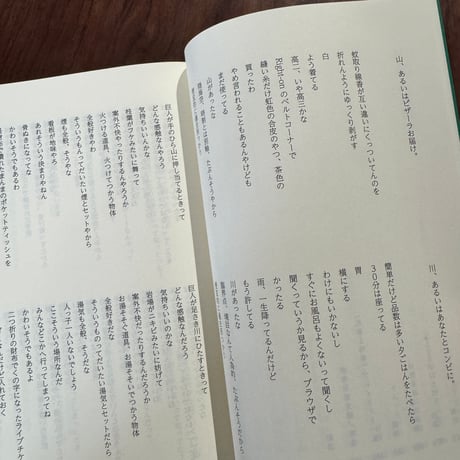 山、あるいはピザーラお届け。
蚊取り線香が互い違いにくっついてんのを
折れんようにゆっくり剥がす
白
よう着てる
高二、いや高三かな
Right-onのベルトコーナーで
縫い糸だけ虹色の合皮のやつ、茶色の
買ったわ
やめ言われることもあるんやけども
まだ使ってる
山があったな
川、あるいはあなたとコンビに。
簡単だけど品数は多い夕ごはんをたべたら
30分は座ってる
胃
横にする
わけにもいかないし
すぐにお風呂もよくないって聞くし
聞くっていうか見るから、ブラウザで
かったる
雨、一生降ってるんだけど
もう許してる
川があったな
巨人が手のひら山に押し当てるときって
どんな感触なんやろう
気持ちいいんかな
枝葉がフケみたいに舞って
案外不快やったりするんやろうか
火つける道具、火つけてつかう物体
全般好きやわ
そういうもんってだいたい煙とセットやから
煙も全般、そうやな
看板が地味やら
あれそういう決まりやねん
骨ぬきになってな
かわいそうでもあるわ
巨人が足さき川にひたすときって
どんな感触なんだろう
気持ちいいのかな
岩場がニキビみたいに妨げて
案外不快だったりするんだろうか
お湯そそぐ道具、お湯そそいでつかう物体
全般好きだな
そういうものってだいたい湯気とセットだから
湯気も全般、そうだな
人っ子一人いないでしょ
ここそういう場所なんだ
みんなどこかへ行ってしまってね
かわいそうでもあるよ